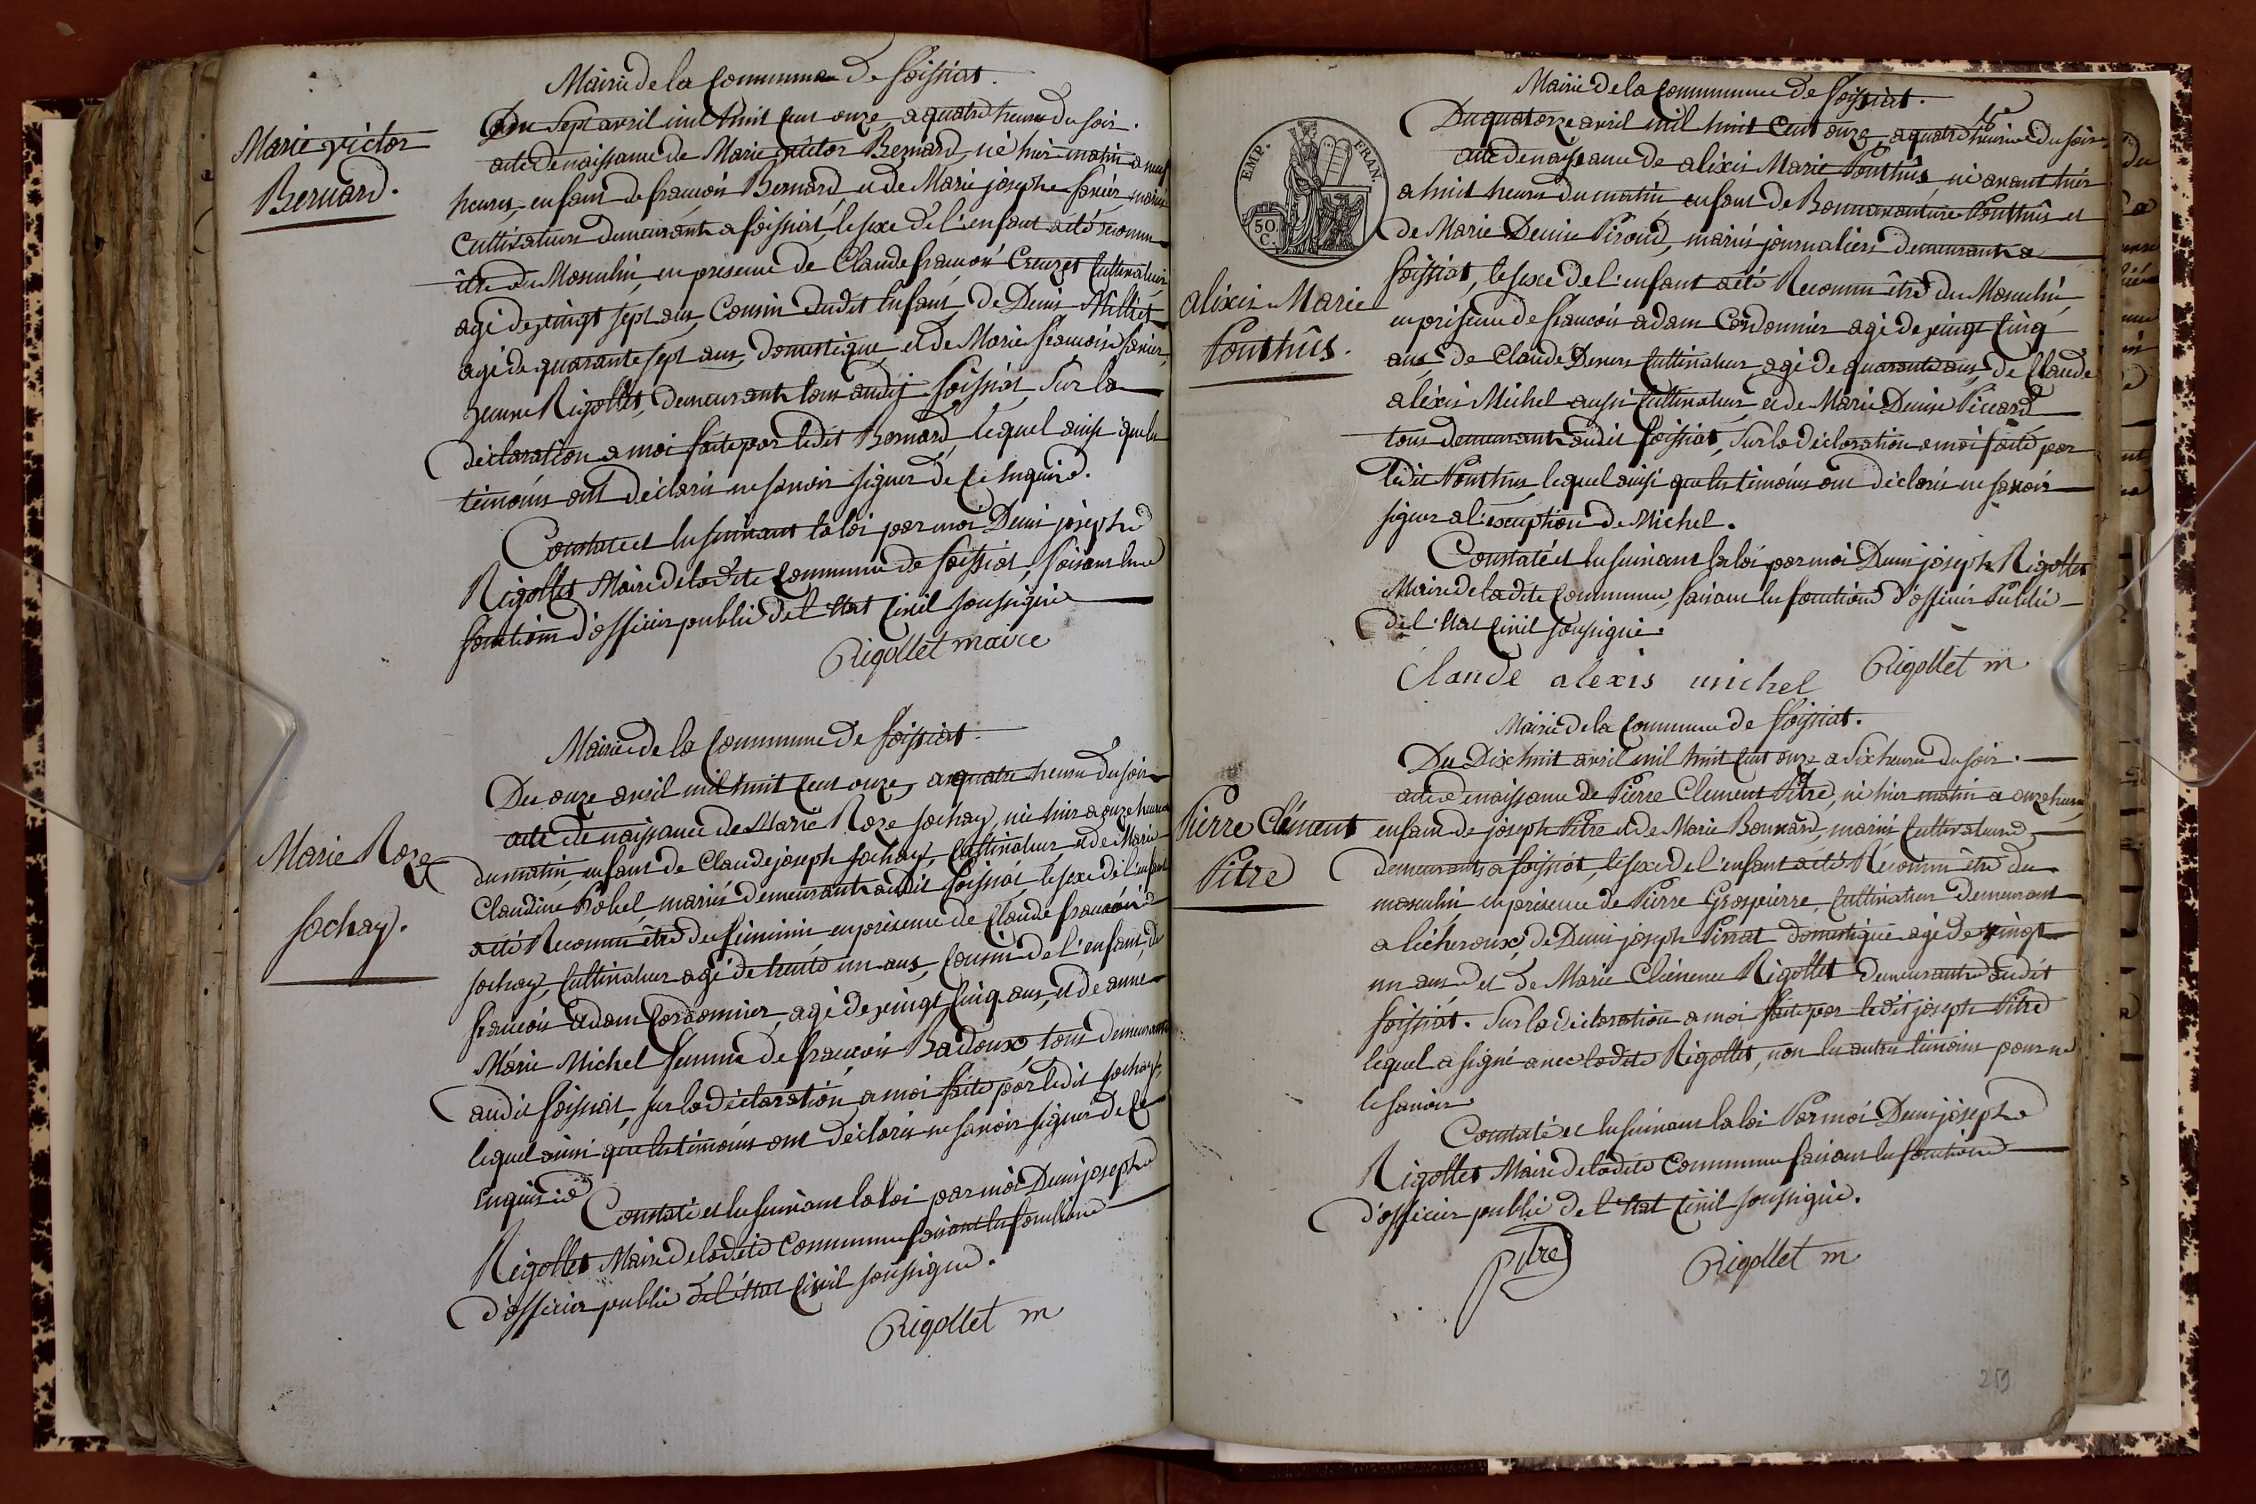 Mairie de la Commune de foissiat.
Marie victor
Bernard.
Du sept avril mil huit cent onze, a quatre heures du soir.
acte de naissance de Marie victor Bernard, né hier matin a neuf
heures, enfant de francois Bernard, et de Marie josephe favier, mariés
Cultivateurs demeurant a foissiat, le sexe de l'enfant a été reconnu
être du Masculin, en presence de Claude francois Creuzet Cultivateur
agé de vingt sept ans, Cousin dudit Enfant, de Denis Milliet
agé de quarante sept ans, domestique, et de Marie francoise favier,
femme Rigollet, demeurant tous audit foissiat, Sur la
déclaration a moi faite par ledit Bernard, lequel ainsi que les
témoins ont déclaré ne savoir signer de ce Enquis.
Constaté et lu suivant la loi par moi Denis joseph
Rigollet Maire de ladite Commune de foissiat, faisant les
fonctions d'officier public de l'Etat Civil soussigné
Rigollet maire
Mairie de la Commune de foissiat.
Marie Roze
fochay.
Du onze avril mil huit cent onze, a quatre heures du soir
acte de naissance de Marie Roze fochay, née hier a onze heures
du matin, enfant de Claude joseph fochay, Cultivateur et de Marie
Claudine Bohel, mariés demeurant audit foissiat, le sexe de l'enfant
a été Reconnu être du féminin en présence de Claude francois
fochay, Cultivateur agé de trente un ans, Cousin de l'enfant, de
francois adam Cordonnier, agé de vingt Cinq ans, et de anne
Marie Michel femme de francois Badoux, tous demeurant
audit foissiat, sur la déclaration a moi faite par ledit fochay,
lequel ainsi que les témoins ont déclaré ne savoir signer de ce
Enquis
Constaté et lu suivant la loi par moi Denis joseph
Rigollet Maire de ladite Commune faisant les fonctions
d'officier public de l'état Civil soussigné.
Rigollet m
Mairie de la Commune de foissiat.
EMP. FRAN.
50.
C.
alixis Marie
Ponthûs.
Du quatorze avril mil huit cent onze, a quatre heures du soir
acte de naissance de alixis Marie Ponthûs, né avant hier
a huit heures du matin enfant de Bonnaventure Ponthûs et
de Marie Denise Piroud, mariés journaliers demeurant a
foissiat, le sexe de l'enfant a été Reconnu être du Masculin,
en présence de francois adam Cordonnier agé de vingt Cinq
ans, de Claude Cultivateur agé de quarante ans, de Claude
aléxis Michel aussi Cultivateur, et de Marie Denise Piccard
tous demeurant audit foissiat, Sur la déclaration a moi faite par
ledit Ponthus, lequel ainsi que les témoins ont déclaré ne savoir
signer a l'exception de Michel.
Constaté et lu suivant la loi par moi Denis joseph Rigollet
Maire de ladite Commune, faisant les fonctions d'officier Public
de l'Etat Civil soussigné.
Claude alexis michel
Rigollet m
Mairie de la Commune de foissiat.
Pierre Clément
Pitre
Du Dix huit avril mil huit Cent onze a Six heures du soir.
acte de naissance de Pierre Clement Pitre, né hier matin a onze heures
enfant de joseph Pitre et de Marie Bonnard, mariés Cultivateurs
demeurants a foissiat, le sexe de l'enfant a été Reconnu être du
masculin, en présence de Pierre Grospierre, Cultivateur demeurant
a lécheroux, de Denis joseph Pirrat domestique agé de vingt
un ans et de Marie Clémence Rigollet demeurants audit
foissiat. Sur la déclaration a moi faite par ledit joseph Pitre
lequel a signé avec ladite Rigollet, non les autres témoins pour ne
le savoir
Constaté et lu suivant la loi Par moi Denis joseph
Rigollet Maire de ladite Commune faisant les fonctions
d'officier public de l'Etat Civil soussigné.
pitre
Rigollet m
259